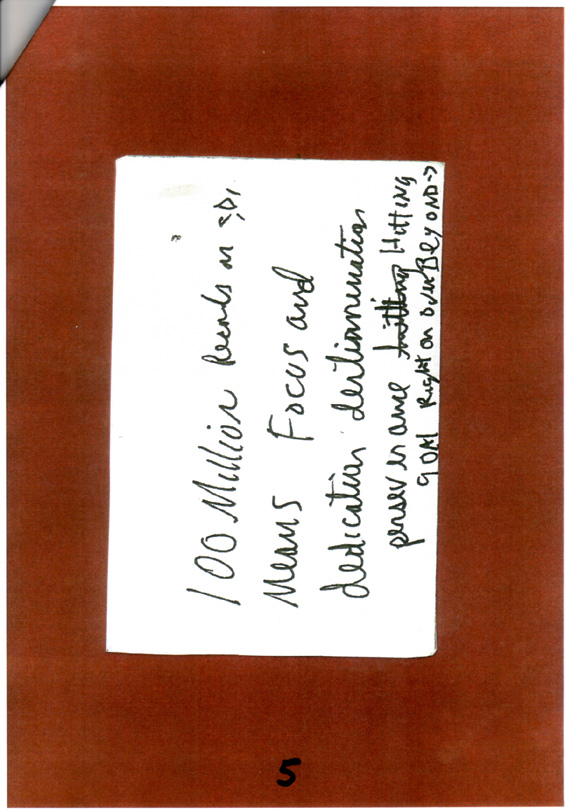 100 Million Records on
Means Focus and
dedication
perserverance hitting Hitting
gOAl Right on over BeyOND->
5